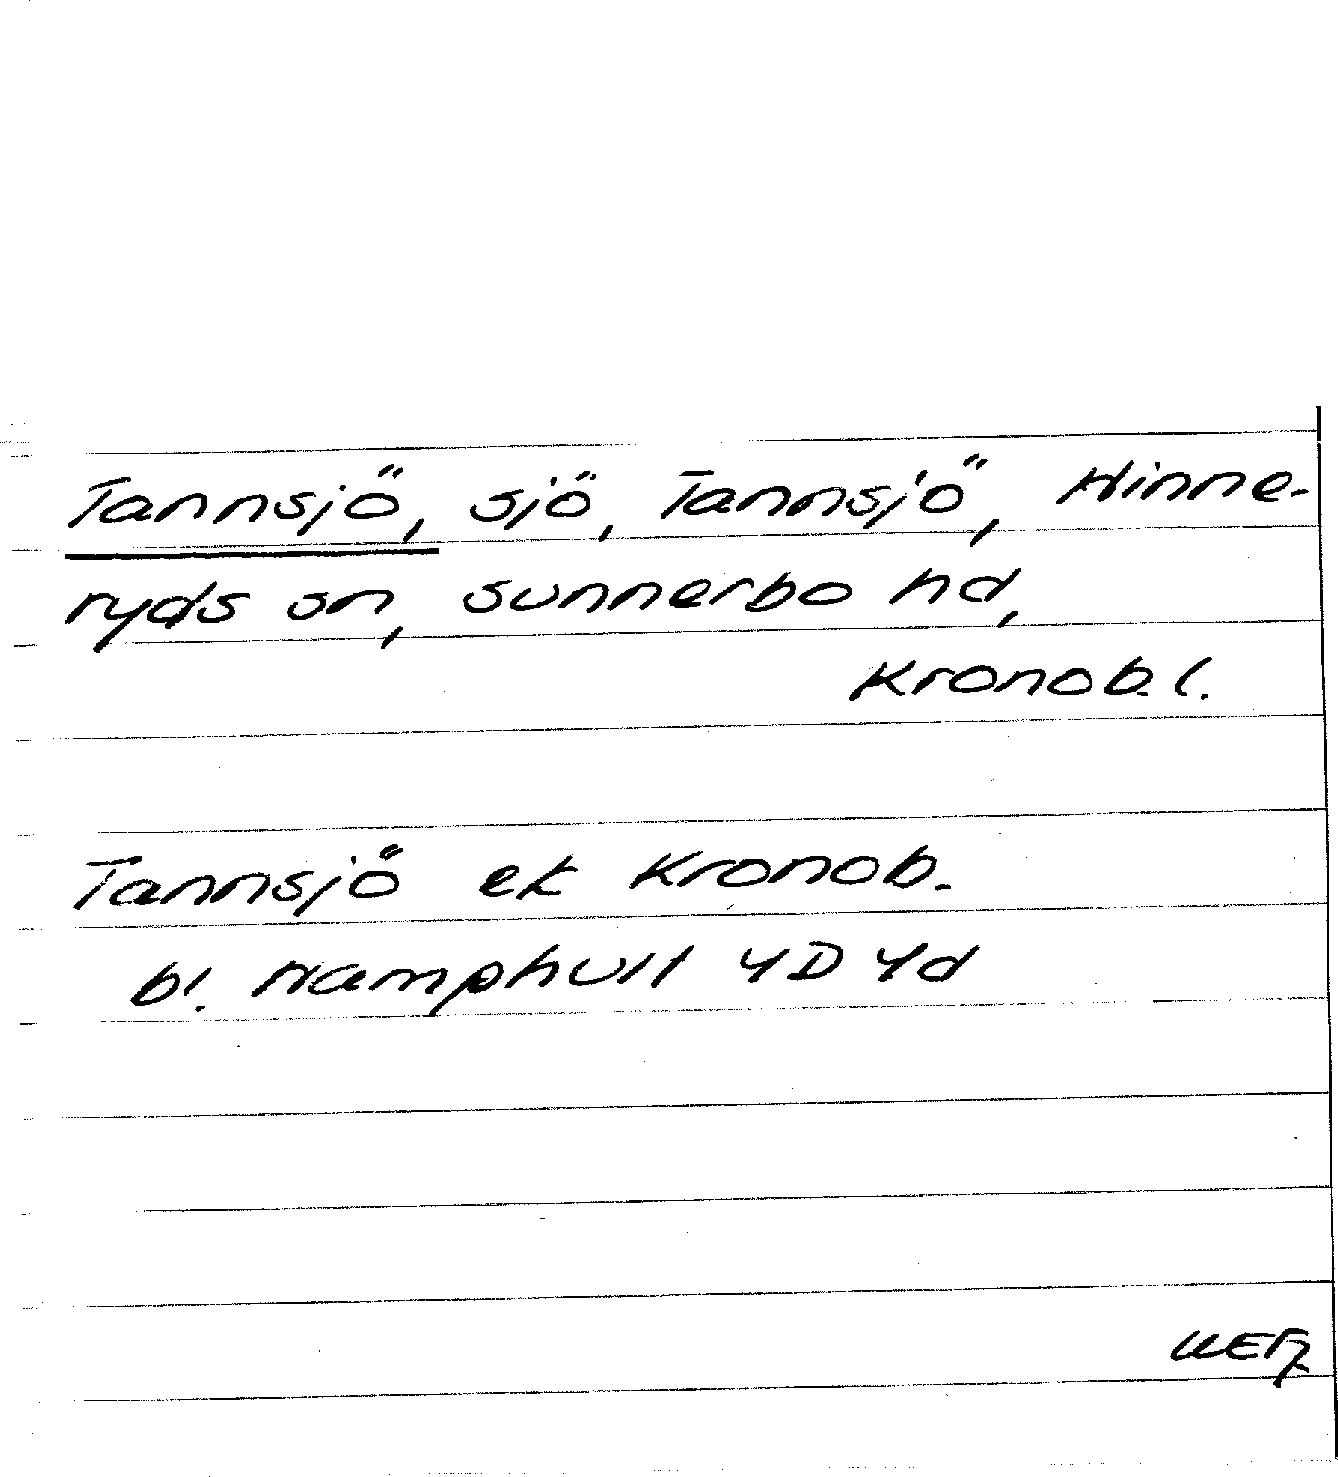 Tannsjö, sjö, Tannsjö, Hinne-
ryds sn, Sunnerbo hd,
Kronob. l.
Tannsjö ek Kronob.
bl. Hamphult 4D 4d